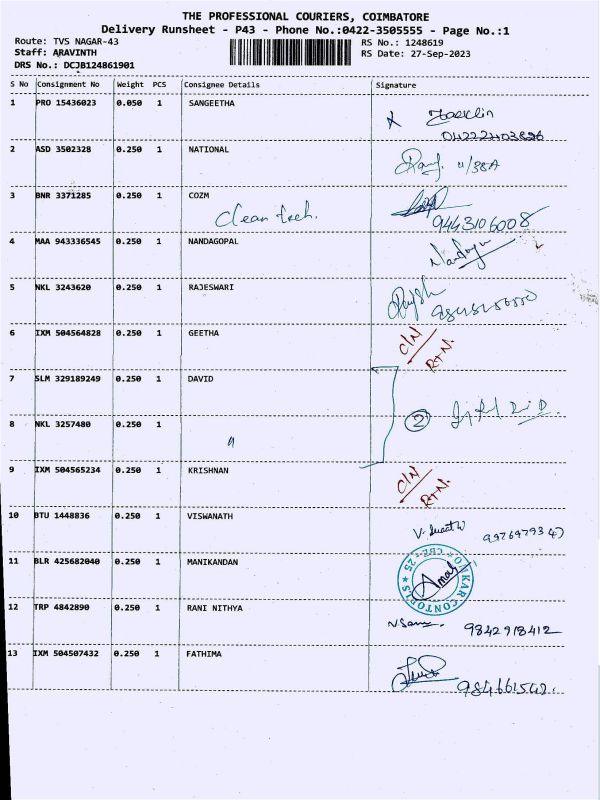 THE PROFESSIONAL COURIERS, COIMBATORE
Delivery Runsheet - P43 - Phone No.:0422-3505555 - Page No.:1
Route: TVS NAGAR-43
RS No.: 1248619
Staff: ARAVINTH
RS Date: 27-Sep-2023
DRS No.: DCJB124861901
S No Consignment No Weight PCS Consignee Details Signature
1 PRO 15436023 0.050 1 SANGEETHA
2 ASD 3502328 0.250 1 NATIONAL
11/38A
3 BNR 3371285 0.250 1 COZM
Clean tech.
9443106008
4 MAA 943336545 0.250 1 NANDAGOPAL
5 NKL 3243620 0.250 1 RAJESWARI
6 IXM 504564828 0.250 1 GEETHA
C/N
RTN.
7 SLM 329189249 0.250 1 DAVID
8 NKL 3257480 0.250 1
"
2
9 IXM 504565234 0.250 1 KRISHNAN
C/N
RTN.
10 BTU 1448836 0.250 1 VISWANATH
11 BLR 425682040 0.250 1 MANIKANDAN
12 TRP 4842890 0.250 1 RANI NITHYA
9842918412
13 IXM 504507432 0.250 1 FATHIMA